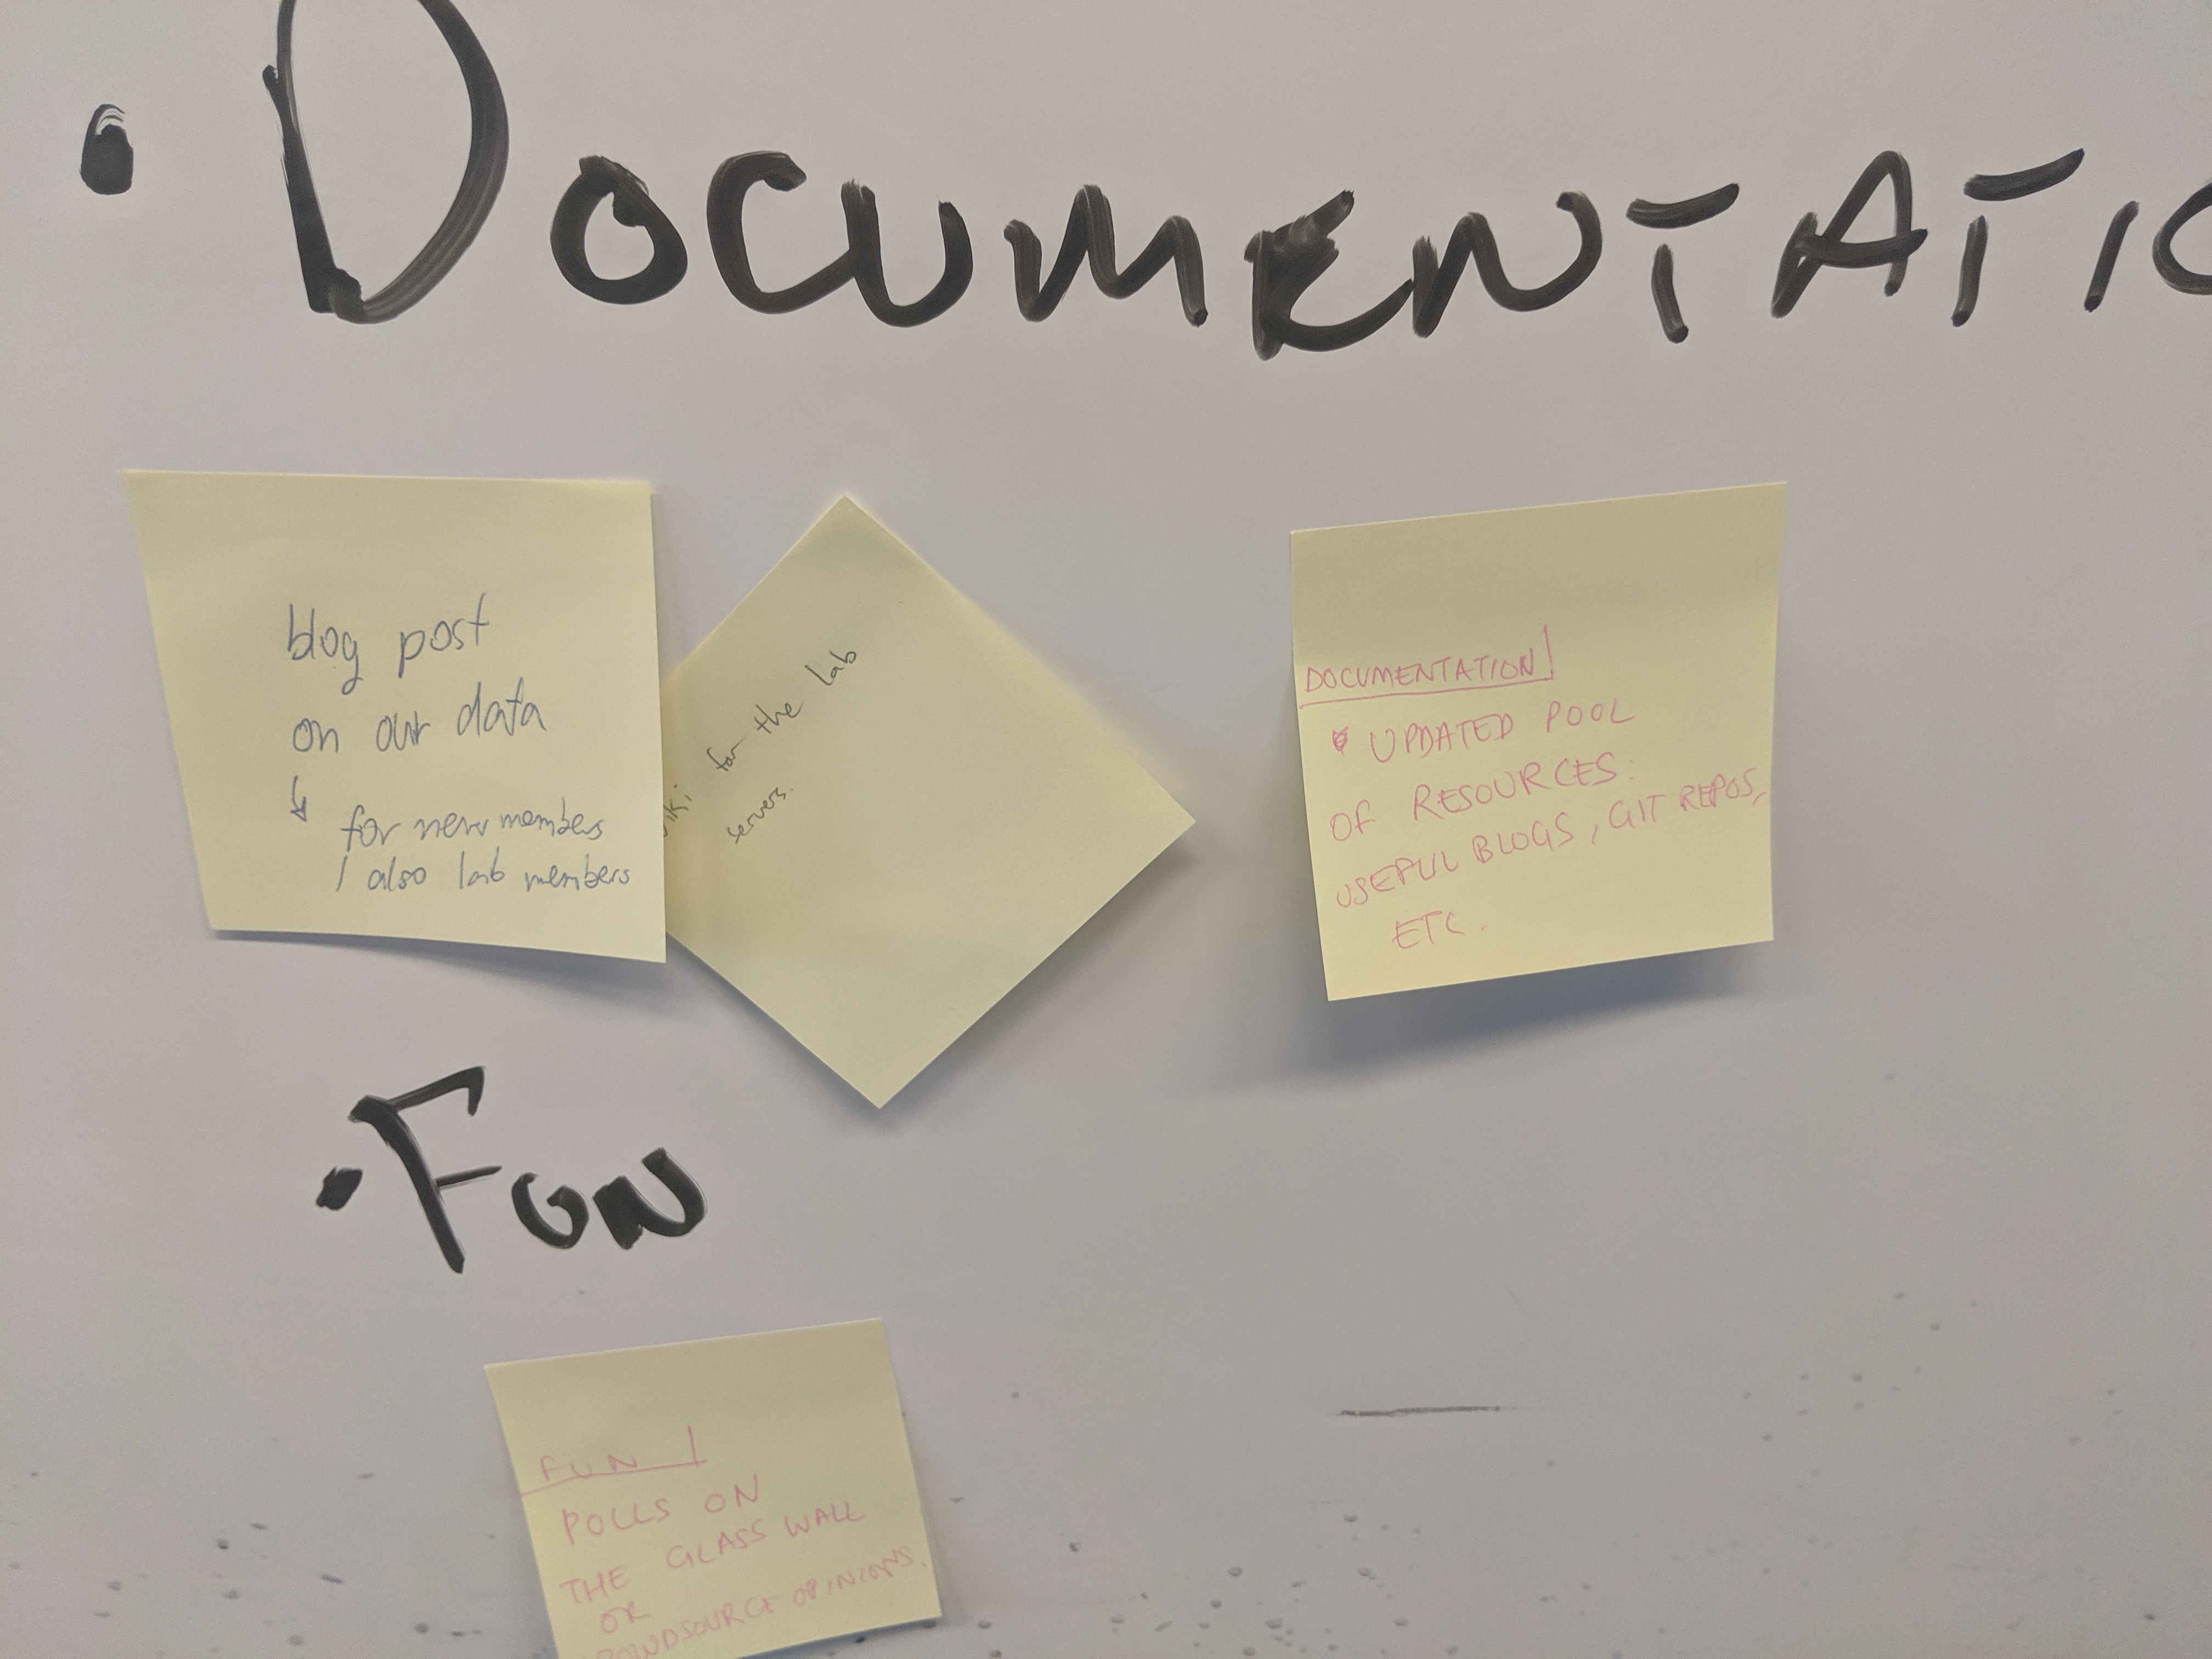 • DOCUMENTATIO
blog post
on our data
↳ for new members
/ also lab members
for the lab
servers.
DOCUMENTATION
• UPDATED POOL
OF RESOURCES:
USEFUL BLOGS, GIT REPOS,
ETC.
• FUN
FUN
POLLS ON
THE GLASS WALL
OR
OPINIONS.